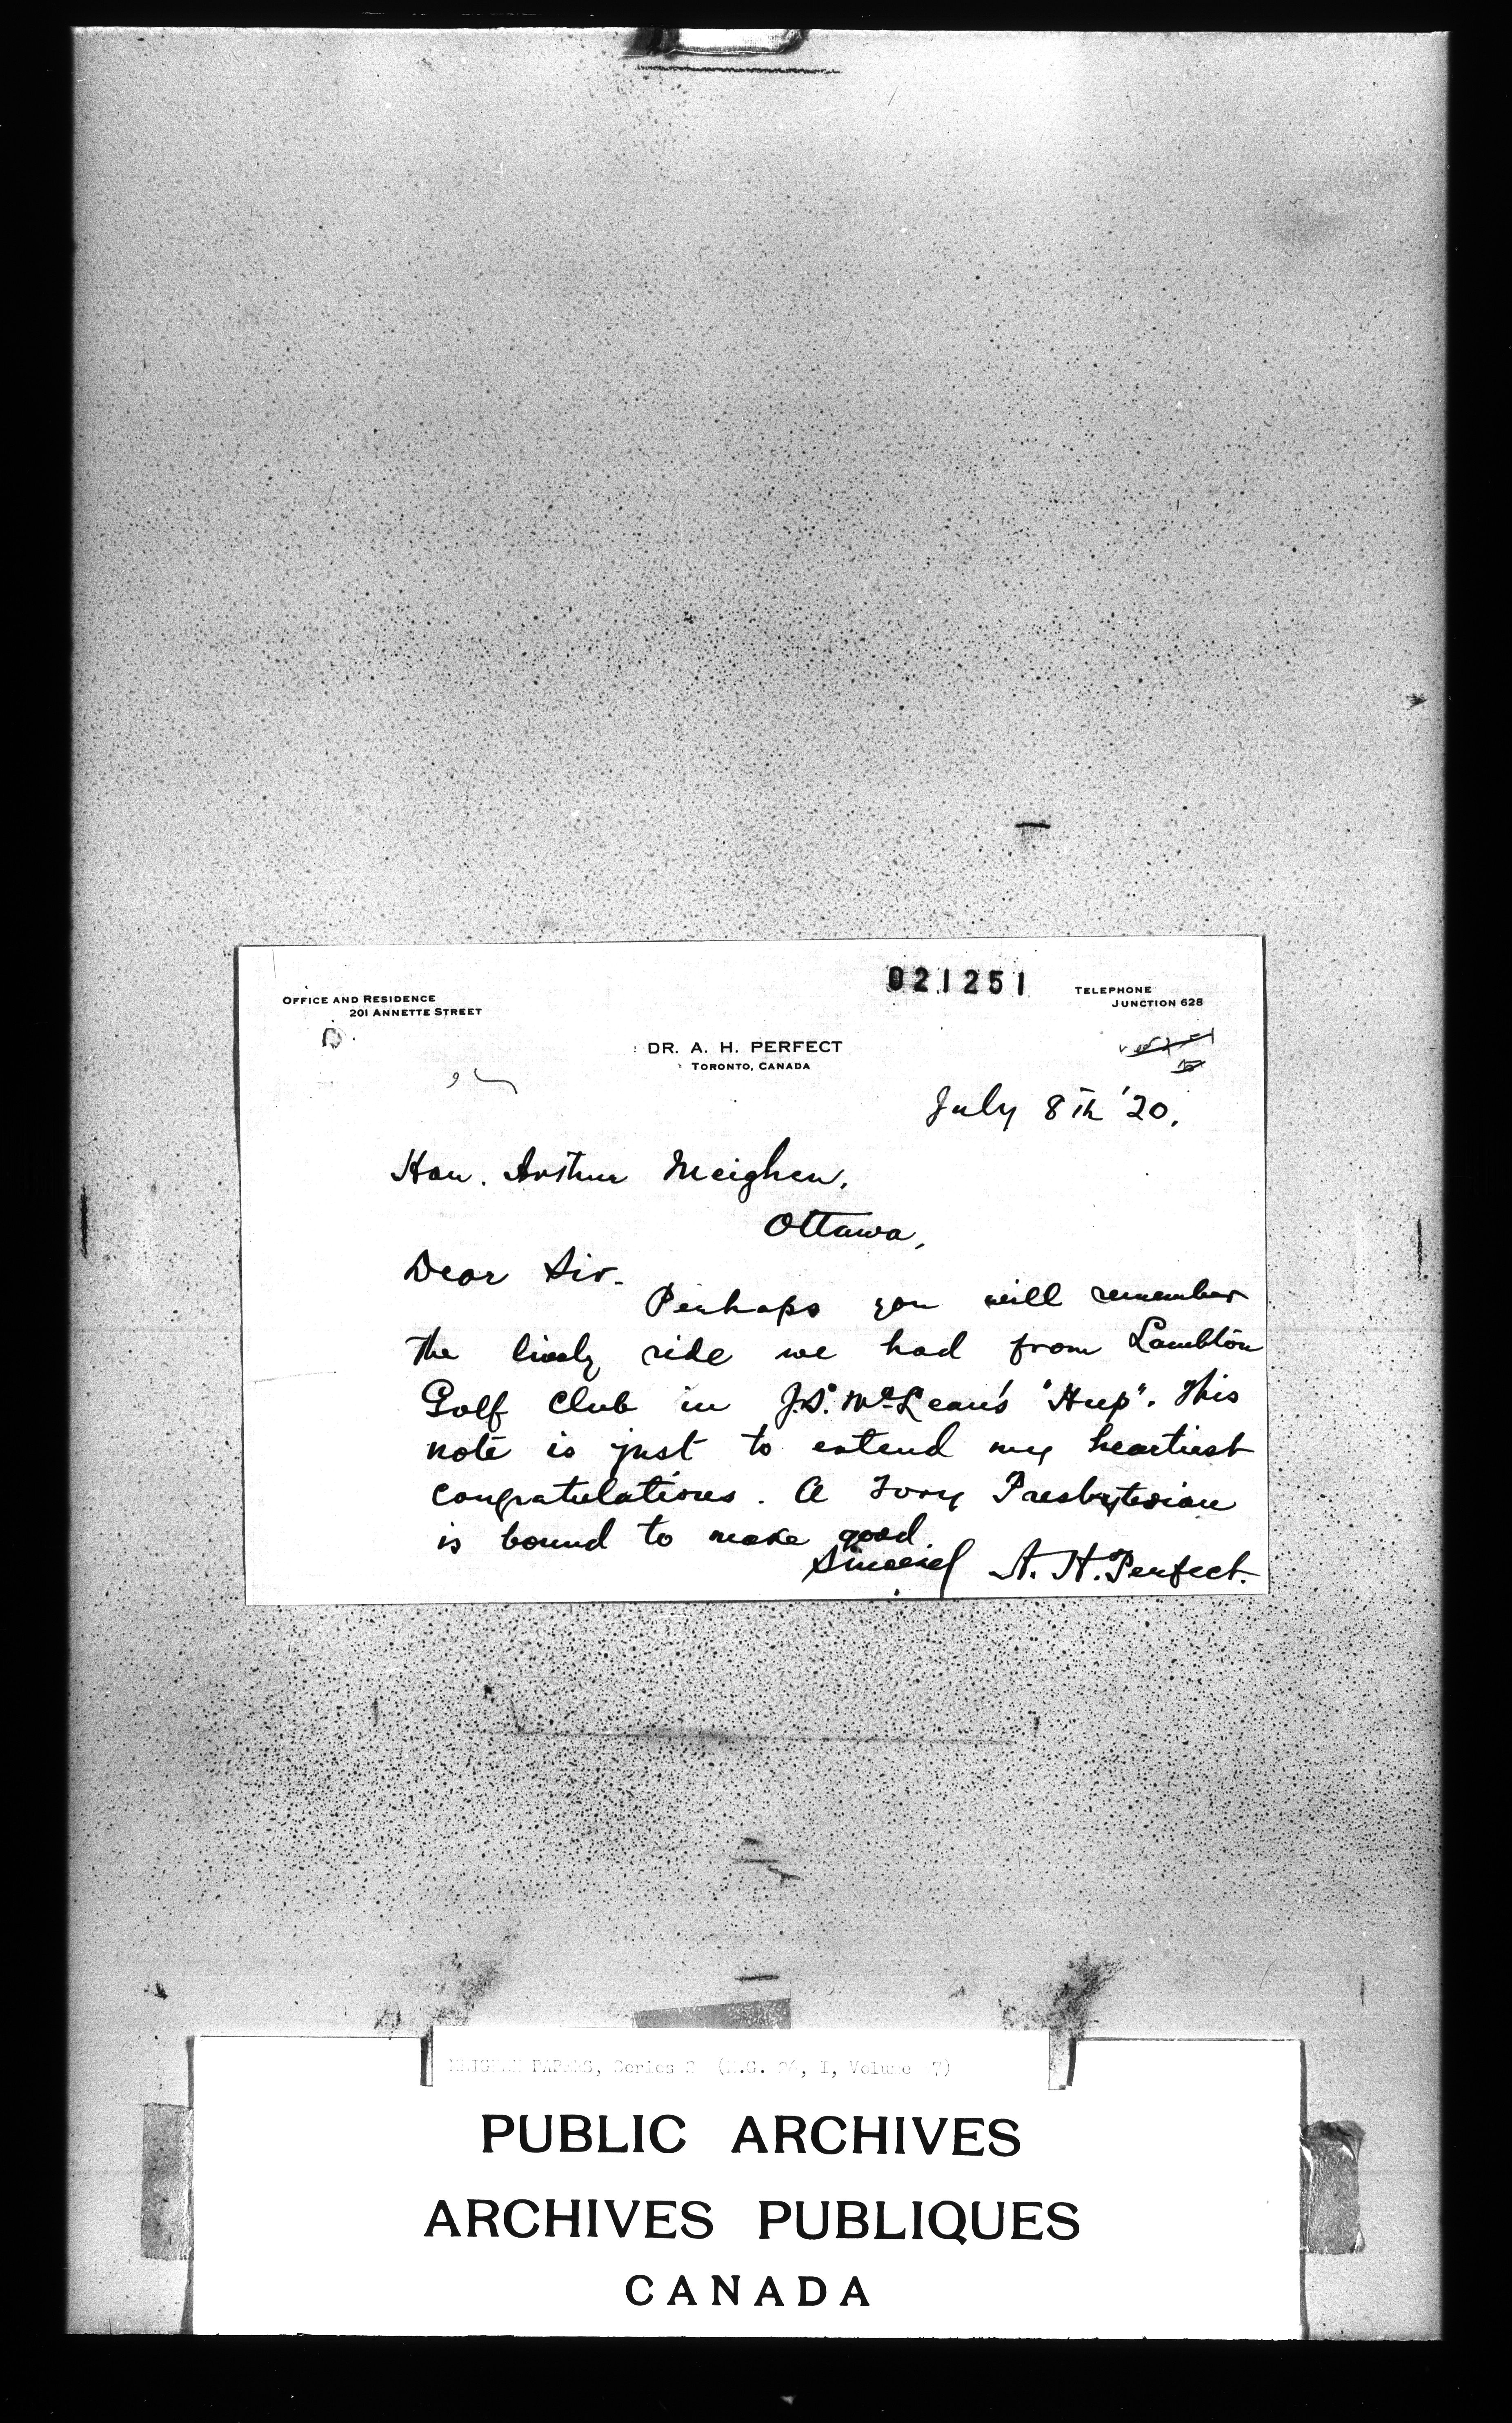 021251
OFFICE AND RESIDENCE
201 ANNETTE STREET
TELEPHONE
JUNCTION 628
DR. A. H. PERFECT
TORONTO, CANADA
July 8th '20.
Hon. Arthur Meighen.
Ottawa,
Dear Sir.
Perhaps you will remember
the lively ride we had from Lambton
Golf Club in J.S. McLean's "Hup". This
note is just to extend my heartiest
congratulations. A Tory Presbyterian
is bound to make good.
Sincerely A. H. Perfect.
MEIGHEN PAPERS, Series 2 (M.G. 26, I, Volume 7)
PUBLIC ARCHIVES
ARCHIVES PUBLIQUES
CANADA